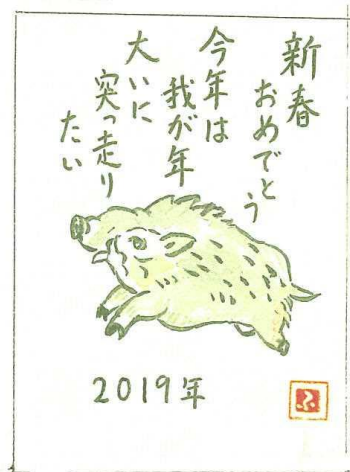 新春
おめでとう
今年は
我が年
大いに
突っ走り
たい
2019年
ふ